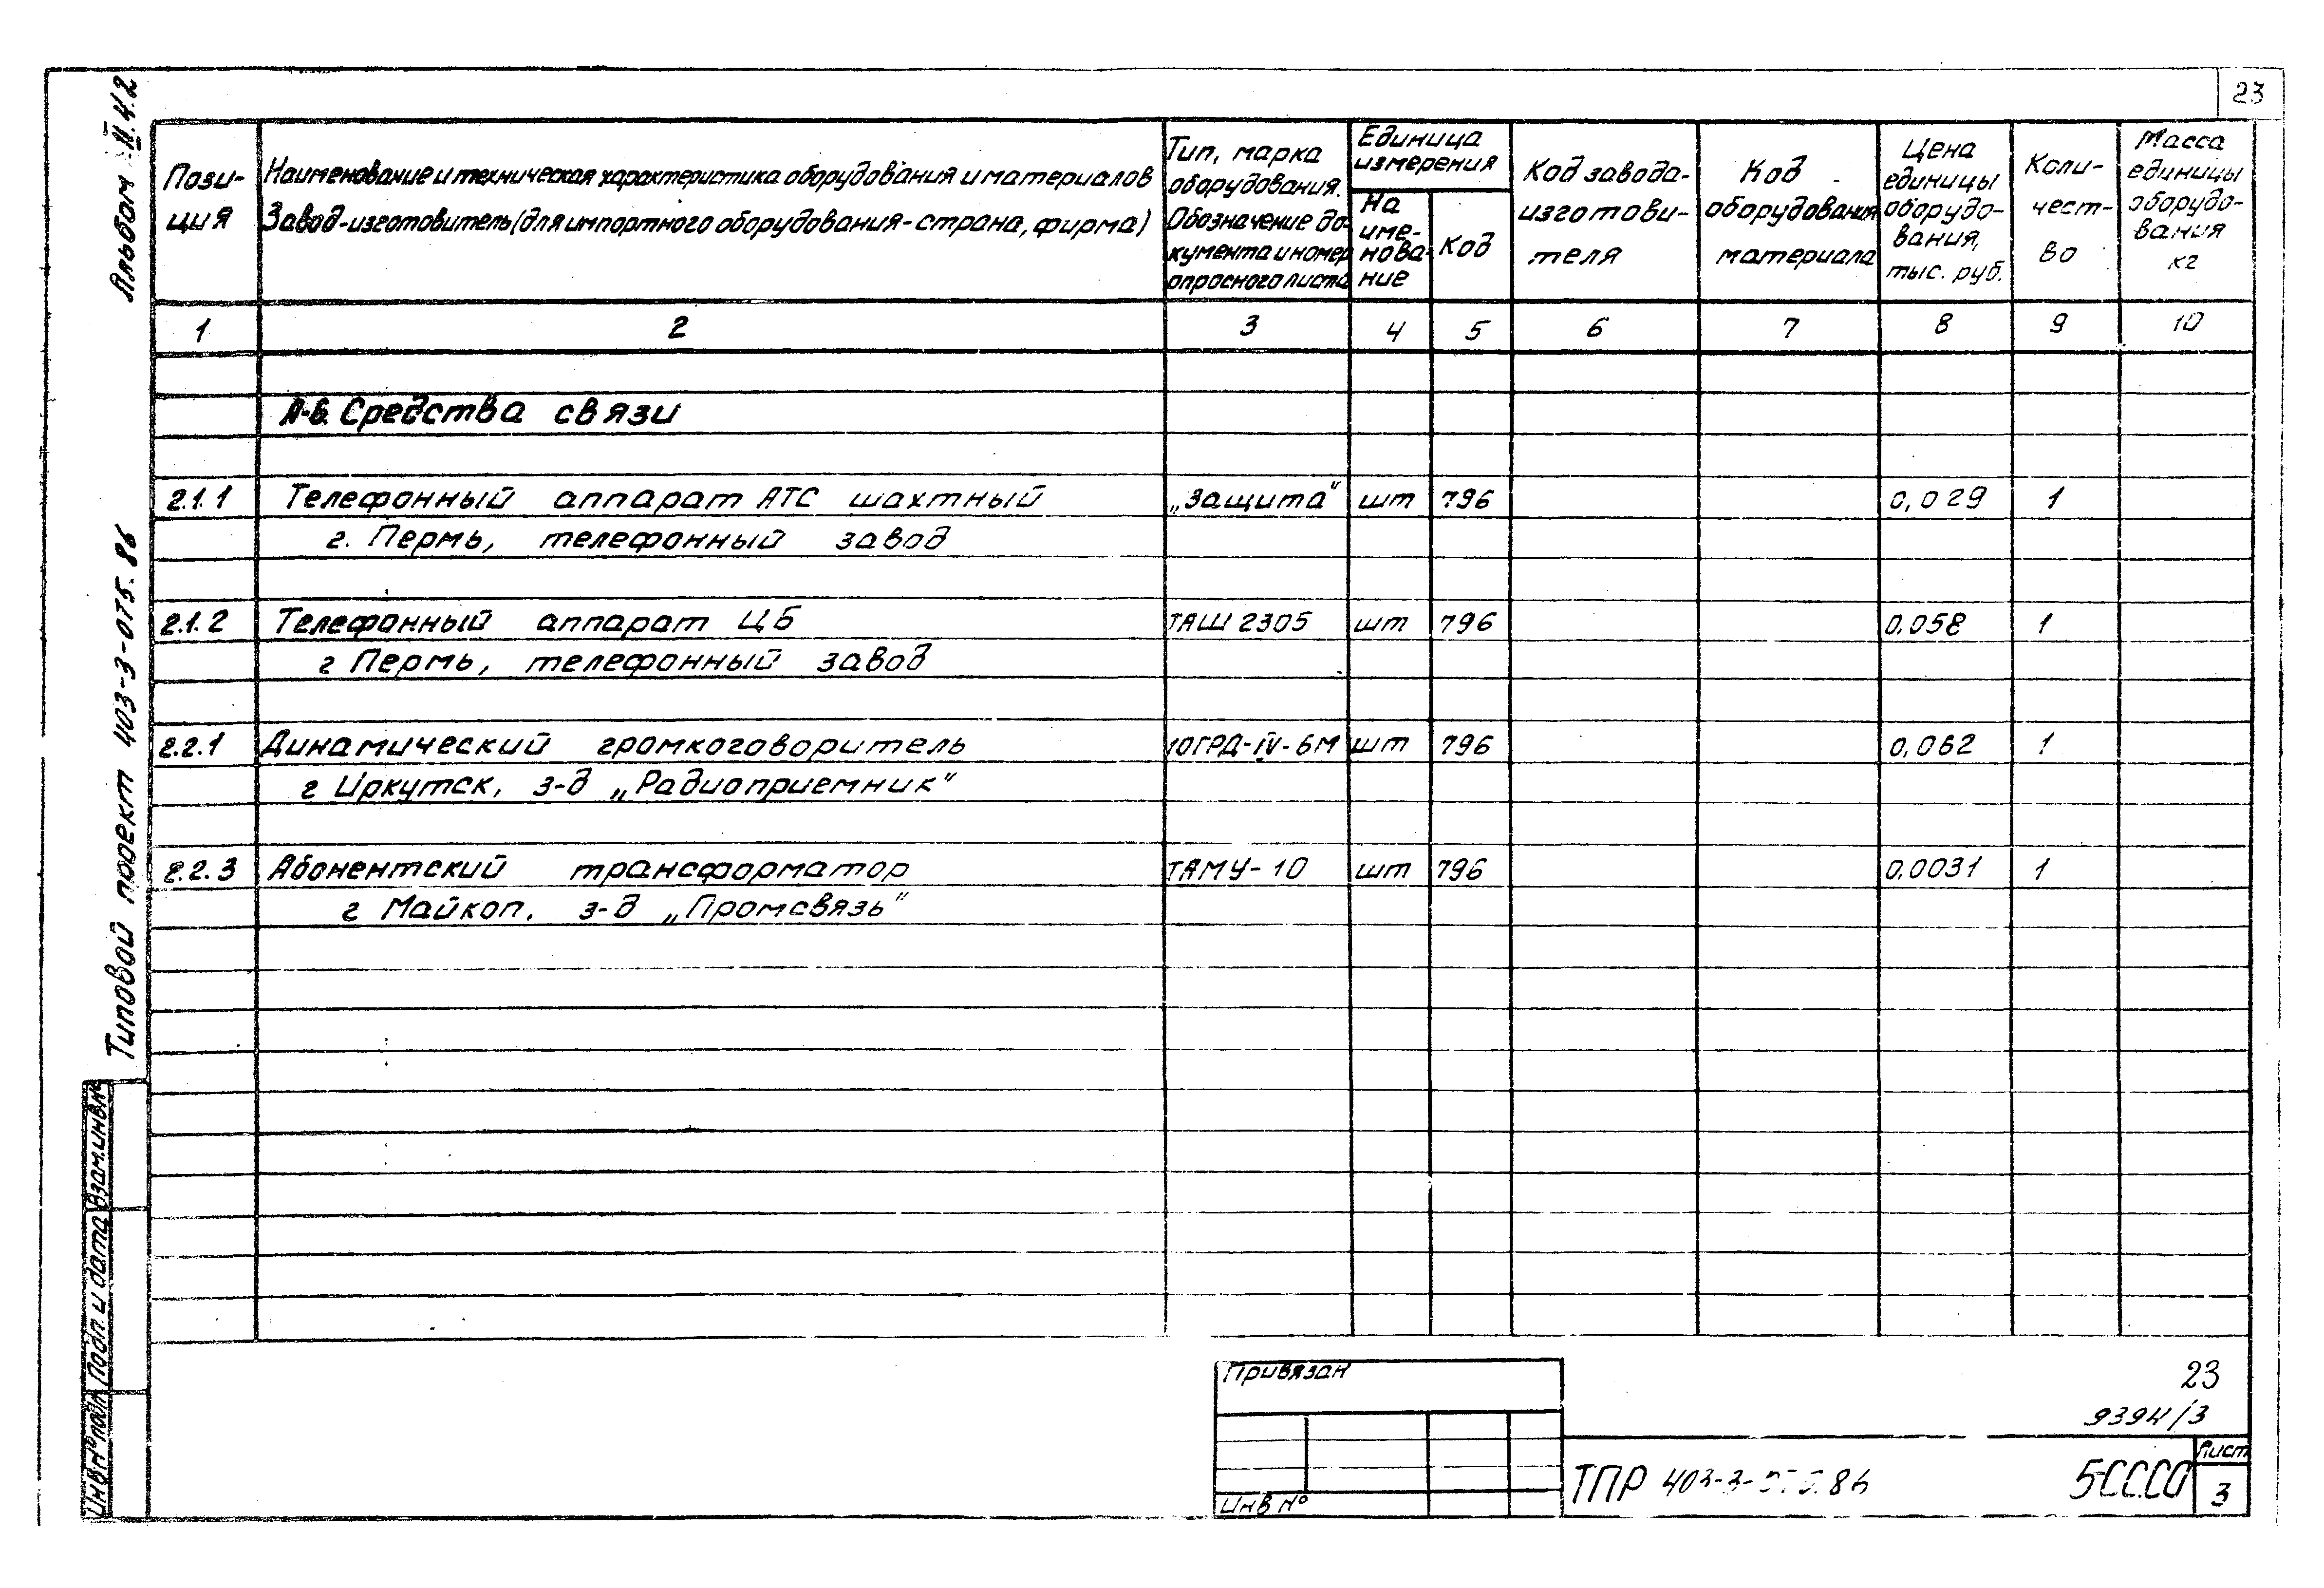 23
Альбом II.4.2
Типовой проект 403-3-075.86
Пози-
ция
Наименование и техническая характеристика оборудования и материалов
Завод-изготовитель (для импортного оборудования-страна, фирма)
Тип, марка
оборудования.
Обозначение до-
кумента и номер
опросного листа
Единица
измерения
На
име-
нова-
ние
Код
Код завода-
изготови-
теля
Код
оборудования
материала
Цена
единицы
оборудо-
вания,
тыс. руб.
Коли-
чест-
во
Масса
единицы
оборудо-
вания
кг
1 2 3 4 5 6 7 8 9 10
А-6. Средства связи
2.1.1 Телефонный аппарат АТС шахтный „Защита" шт 796 0,029 1
г. Пермь, телефонный завод
2.1.2 Телефонный аппарат ЦБ ТАШ 2305 шт 796 0.058 1
г Пермь, телефонный завод
2.2.1 Динамический громкоговоритель 10ГРД-IV-6М шт 796 0,062 1
г Иркутск, з-д „Радиоприемник"
2.2.3 Абонентский трансформатор ТАМУ-10 шт 796 0.0031 1
г Майкоп, з-д „Промсвязь"
Взам.инв.№
Подп. и дата
Инв.№ подл.
Привязан
Инв №
23
9394/3
ТПР 403-3-075.86
5-СС.СО
Лист
3